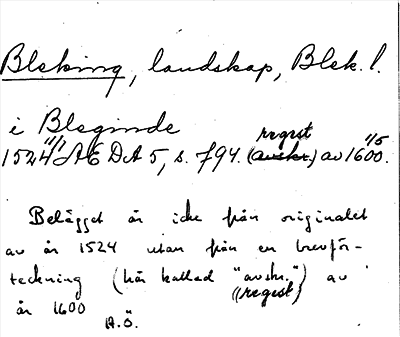 Bleking, landskap, Blek. l.
i Bleginde
1524 11/1 ÆDA 5, s. 794. (avskr.) regest av 1600. 1/5
Belägget är icke från originalet
av år 1524 utan från en brevför-
teckning (här kallad "avskr.") av
(regest)
år 1600
A.Ö.